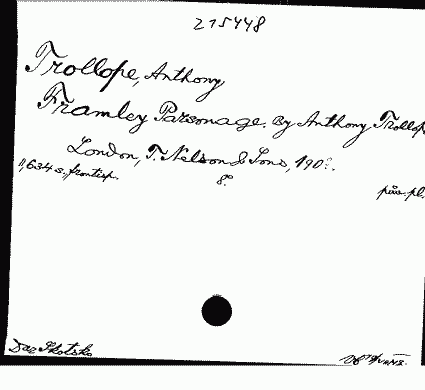 215448
Trollope, Anthony
Framley Parsonage. By Anthony Trollop
London, T. Nelson & Sons, 190?.
634 s., frontisp. 8°. pův. pl.
Dar Skotsko